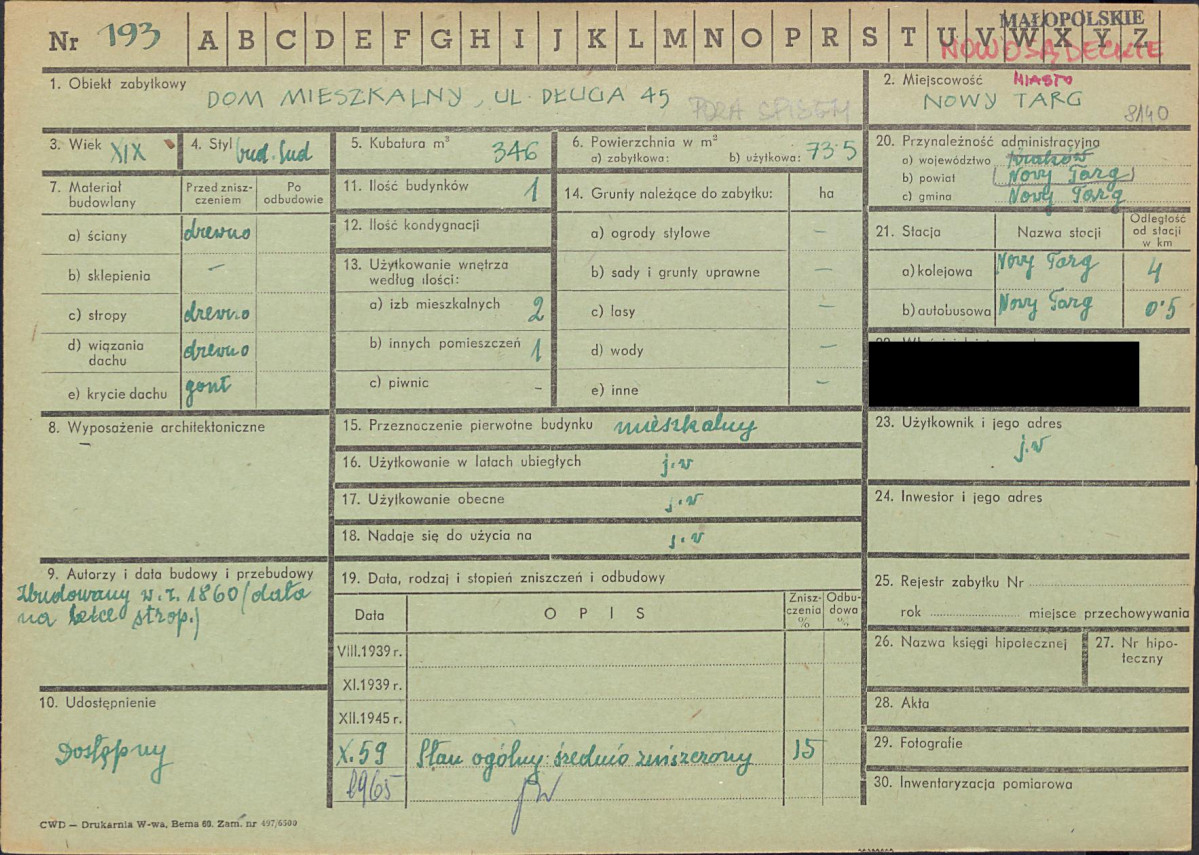 MAŁOPOLSKIE
Nr 193 A B C D E F G H I J K L M N O P R S T U V W X Y Z
NOWOSĄDECKIE
1. Obiekt zabytkowy
DOM MIESZKALNY, UL. DŁUGA 45 POZA SPISEM
2. Miejscowość MIASTO
NOWY TARG
8140
3. Wiek XIX
4. Styl bud. lud
5. Kubatura m³ 346
6. Powierzchnia w m²
a) zabytkowa: b) użytkowa: 73.5
20. Przynależność administracyjna
a) województwo Kraków
b) powiat (Nowy Targ)
c) gmina Nowy Targ
7. Materiał budowlany
Przed zniszczeniem
Po odbudowie
a) ściany drewno
b) sklepienia –
c) stropy drewno
d) wiązania dachu drewno
e) krycie dachu gont
11. Ilość budynków 1
12. Ilość kondygnacji
13. Użytkowanie wnętrza według ilości:
a) izb mieszkalnych 2
b) innych pomieszczeń 1
c) piwnic -
14. Grunty należące do zabytku: ha
a) ogrody stylowe –
b) sady i grunty uprawne –
c) lasy –
d) wody –
e) inne –
21. Stacja
Nazwa stacji
Odległość od stacji w km
a) kolejowa Nowy Targ 4
b) autobusowa Nowy Targ 0.5
8. Wyposażenie architektoniczne
–
15. Przeznaczenie pierwotne budynku mieszkalny
16. Użytkowanie w latach ubiegłych j.w
17. Użytkowanie obecne j.w
18. Nadaje się do użycia na j.w
23. Użytkownik i jego adres
j.w
24. Inwestor i jego adres
9. Autorzy i data budowy i przebudowy
Zbudowany w. r. 1860 (data
na belce strop.)
10. Udostępnienie
Dostępny
19. Data, rodzaj i stopień zniszczeń i odbudowy
Data
OPIS
Zniszczenia %
Odbudowa %
VIII.1939 r.
XI.1939 r.
XII.1945 r.
X.59 Stan ogólny: średnio zniszczony 15
1965 jw
25. Rejestr zabytku Nr
rok miejsce przechowywania
26. Nazwa księgi hipotecznej
27. Nr hipoteczny
28. Akta
29. Fotografie
30. Inwentaryzacja pomiarowa
CWD — Drukarnia W-wa, Bema 60. Zam. nr 497/6500